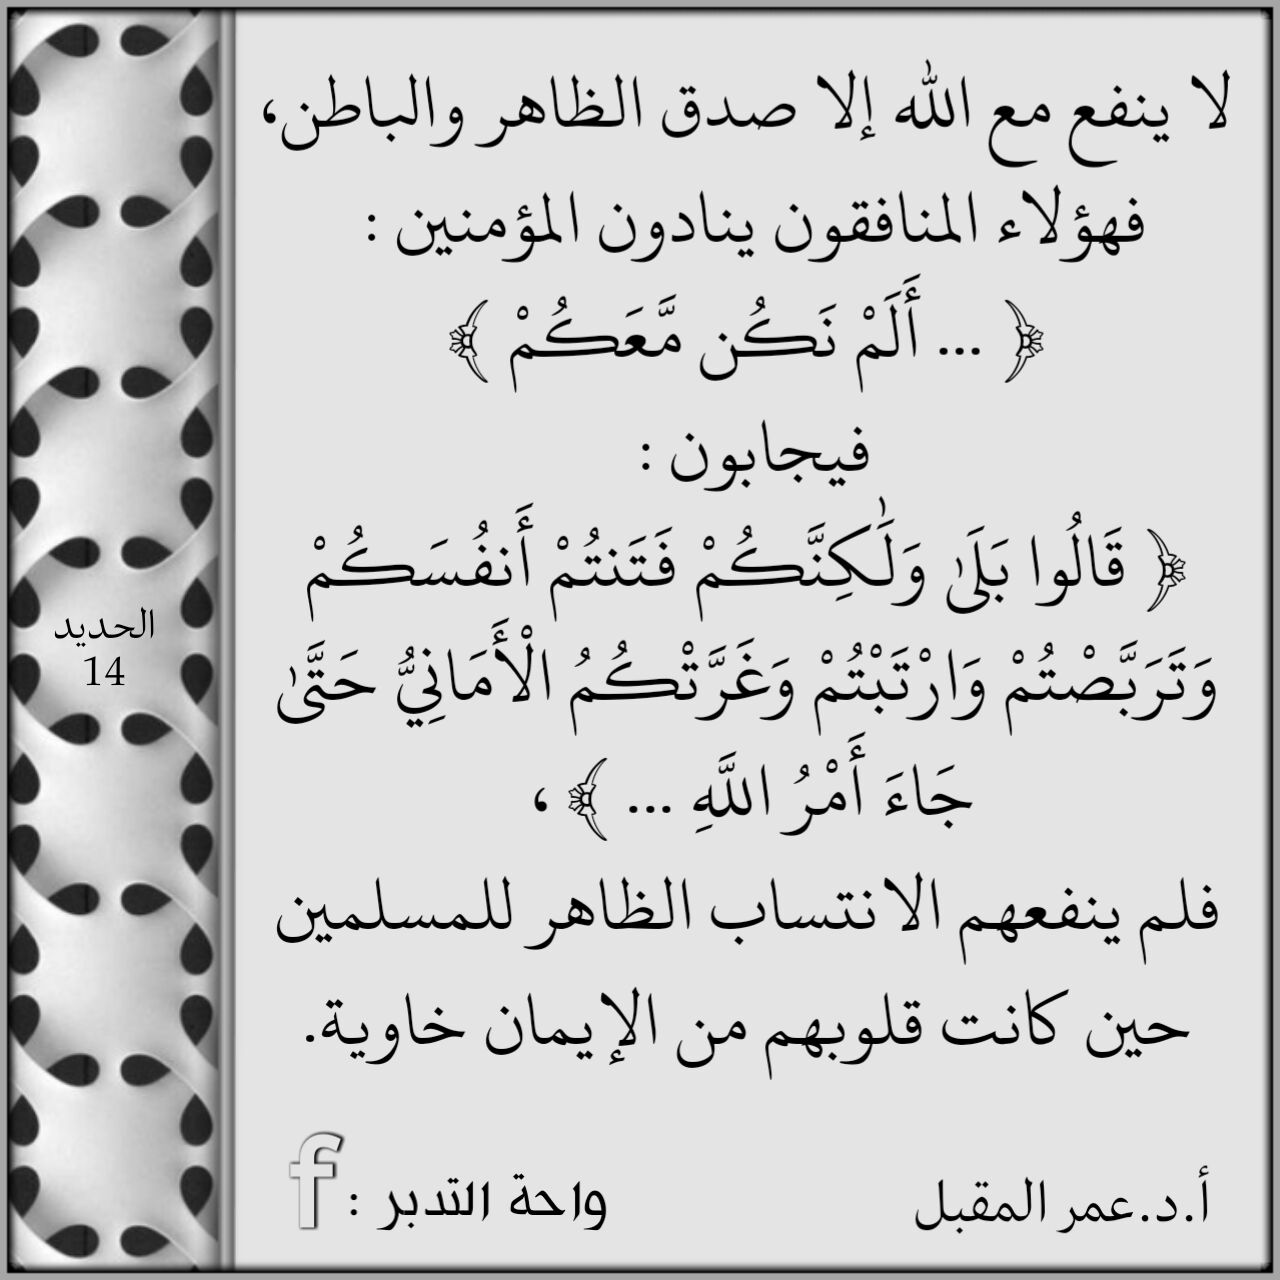 لا ينفع مع الله إلا صدق الظاهر والباطن،
فهؤلاء المنافقون ينادون المؤمنين :
﴿ ... أَلَمْ نَكُن مَّعَكُمْ ﴾
فيجابون :
﴿ قَالُوا بَلَىٰ وَلَٰكِنَّكُمْ فَتَنتُمْ أَنفُسَكُمْ
وَتَرَبَّصْتُمْ وَارْتَبْتُمْ وَغَرَّتْكُمُ الْأَمَانِيُّ حَتَّىٰ
جَاءَ أَمْرُ اللَّهِ ... ﴾ ،
فلم ينفعهم الانتساب الظاهر للمسلمين
حين كانت قلوبهم من الإيمان خاوية.
أ.د.عمر المقبل
واحة التدبر : f
الحديد
14